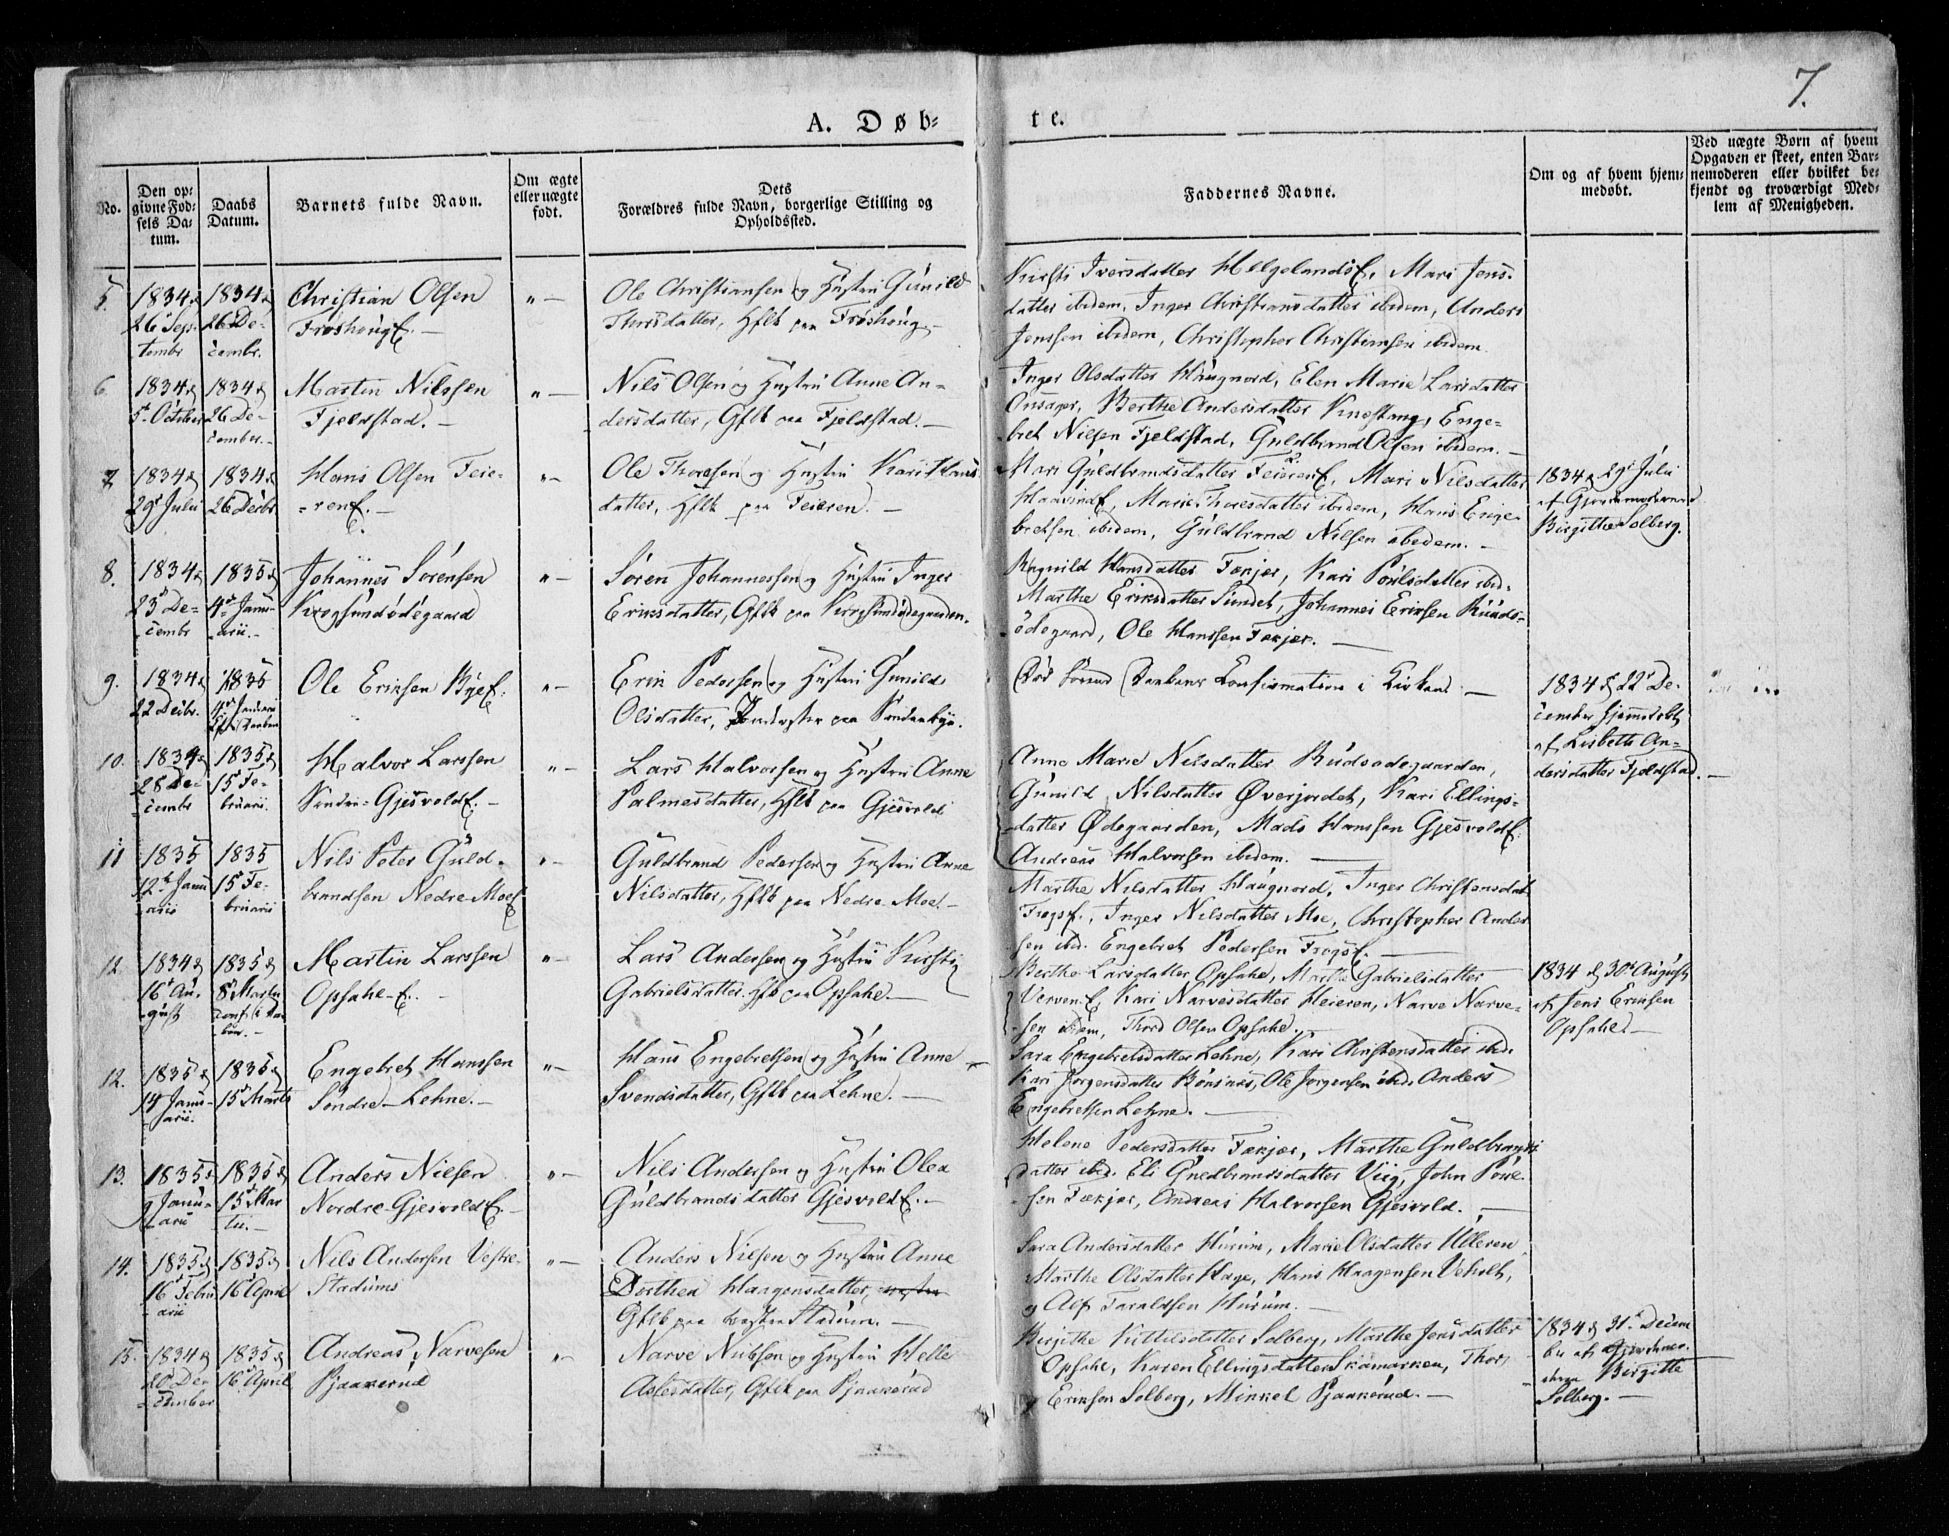 7.
A. Døb-
te.
No.
Den op-
givne Fød-
sels Da-
tum.
Daabs
Datum.
Barnets fulde Navn.
Om ægte
eller uægte
født.
Dets
Forældres fulde Navn, borgerlige Stilling og
Opholdssted.
Faddernes Navne.
Om og af hvem hjem-
medøbt.
Ved uægte Børn af hvem
Opgaven er skeet, enten Bar-
nemoderen eller hvilket be-
kjendt og troværdigt Med-
lem af Menigheden.
5.
1834
26 Sep-
tembr
1834
26 De-
cembr.
Christian Olsen
Froshoug
Ole Christiansen og Hustru Gunild
Thorsdatter, Hflk paa Froshoug
Kirsti Iversdatter Helgeland, Mari Jens-
datter ibidem, Inger Christiansdatter ibidem, Anders
Jenssen ibidem, Christopher Christiansen ibidem
6
1834
5 October
1834
26 De-
cember.
Martin Nilssen
Fjeldstad.
Nils Olsen og Hustru Anne An-
dersdatter, Gflk paa Fjeldstad.
Inger Olsdatter Haugnord, Elen Marie Larsdatter
Onsager, Berthe Andersdatter, Enge-
bret Nilsen Fjeldstad, Guldbrand Olsen ibidem.
7
1834
29 Julii
1834
26 Decbr
Hans Olsen Feie-
ren
Ole Thoresen og Hustru Kari Hans
datter, Hflk paa Feieren.
Mari Guldbrandsdatter Feieren, Mari Nilsdatter
Marie Thoresdatter ibidem, Hans Enge-
bretsen ibidem, Guldbrand Nilsen ibidem.
1834 d 29 Julii
af Gjordemoderen
Birgitha Solberg.
8.
1834
23 De-
cembr
1835
4 Janu-
arii.
Johannes Sörensen
Krogsundödegaard
Sören Johannessen og Hustru Inger
Eriksdatter, Gflk paa Krogsundödegaarden.
Ragnild Hansdatter Fækjær, Kari Poulsdatter ibid.
Marthe Eriksdatter Sundet, Johannes Eriksen Ruuds-
ödegaard, Ole Hanssen Fækjær.
9.
1834
22 Decbr.
1835
4 Januarii
Ole Eriksen Bye
Erik Pedersen og Hustru Gunild
Olsdatter, paa Söndenbye.
Död förend Daabens Confirmation i Kirken.
1834 d 22 De-
cember hjemmedöbt
af Lisbeth An-
dersdatter Fjeldstad.
10.
1834
28 De-
cembr
1835
15 Fe-
bruarii.
Halvor Larssen
Söndre-Gjesvold
Lars Halvorsen og Hustru Anne
Palmesdatter, Hflk paa Gjesvold
Anne Marie Nilsdatter Rudsödegaarden,
Gunild Nilsdatter Øverjordet, Kari Ellings-
datter Ødegaarden, Mads Hanssen Gjesvold
Andreas Halvorsen ibidem.
11
1835
12 Janu
arii
1835
15 Fe-
bruarii
Nils Peter Guld-
brandsen Nedre-Moe
Guldbrand Pedersen og Hustru Anne
Nilsdatter, Hflk paa Nedre-Moe
Marthe Nilsdatter Haugnord, Inger Christensdat
Frogs, Inger Nilsdatter Moe, Christopher Ander
sen ibid. Engebret Pedersen Frogs
12.
1834
16 Au-
gust
1835
8 Martii
Martin Larssen
Opsahl
Lars Andersen og Hustru Kirsti
Gabrielsdatter. Hflk paa Opsahl.
Berthe Larsdatter Opsahl, Marthe Gabrielsdatter
Verven Kari Narvesdatter Heieren, Narve Narve-
sen ibidem, Thord Olsen Opsahl.
1834 d 30 August
af Jens Eriksen
Opsahl.
12.
1835
14 Janu-
arii.
1835
15 Marts
Engebret Hanssen
Söndre-Lehne.
Hans Engebretsen og Hustru Anne
Svendsdatter, Gflk paa Lehne.
Sara Engebretsdatter Lehne, Kari Christensdatter ibid.
Kari Jörgensdatter Rönsnæs, Ole Jörgensen ibid. Anders
Engebretsen Lehne.
13.
1835
9 Janu-
arii
1835
15 Mar
tii.
Anders Nilsen
Nordre-Gjesvold
Nils Andersen og Hustru Olea
Guldbrandsdatter Gjesvold
Helene Pedersdatter Fækjær, Marthe Guldbrands
datter ibid. Eli Guldbrandsdatter Viig, John Poul-
sen Fækjær, Andreas Halvorsen Gjesvold.
14.
1835
16 Febru
arii
1835
16 April
Nils Andersen Vestre-
Stadum
Anders Nilsen og Hustru Anne
Dorthea Haagensdatter, vestre
Gflk paa vestre Stadum.
Sara Andersdatter Hurum, Marie Olsdatter Ulleren
Marthe Olsdatter Hage, Hans Haagensen Veholt,
og Alf Taraldsen Hurum.
15.
1834
20 De
cember
1835
16 April
Andreas Narvesen
Pjaakerud
Narve Nubsen og Hustru Helle
Aslesdatter, Gflk paa Pjaakerud
Birgithe Kittilsdatter Solberg, Marthe Jensdatter
Opsahl, Karen Ellingsdatter Skamarken, Thor
Eriksen Solberg, Mikkel Pjaakerud.
1834 d 31 Decem
ber af Gjordemo-
deren Birgitte
Solberg.